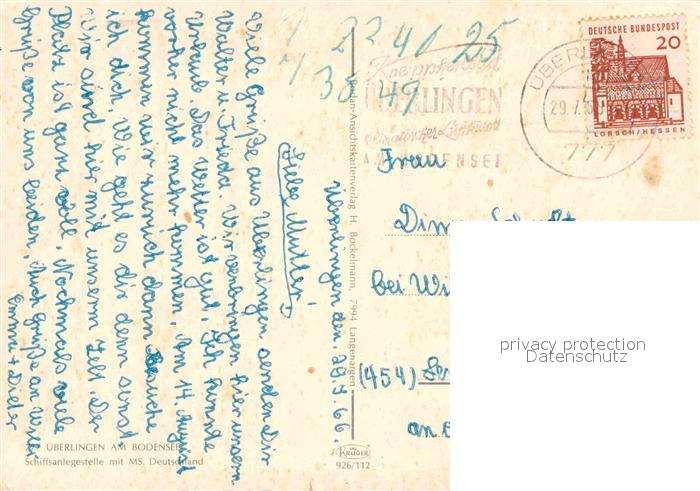 Überlingen den. 28.7.66.
Liebe Mutter!
Viele Grüße aus Überlingen senden Dir
Walter u Frieda. Wir verbringen hier unsern
Urlaub. Das Wetter ist gut. Ich konnte
vorher nicht mehr kommen. Am 14. August
kommen wir zurück dann besuche
ich dich. Wie geht es dir denn sonst
Wir sind hier mit unserm Zelt. Der
Platz ist ganz voll. Nochmals viele
Grüße von uns beiden. Auch Grüße an Willi
Emma + Dieter
1 22 40 25
1 38 49
ÜBERLINGEN
29.7.
777
DEUTSCHE BUNDESPOST
20
LORSCH/HESSEN
Frau
bei
(454)
an
Bodan-Ansichtskartenverlag H. Bockelmann, 7994 Langenargen
ÜBERLINGEN AM BODENSEE
Schiffsanlegestelle mit MS. Deutschland
KRÜGER
926/112
privacy protection
Datenschutz